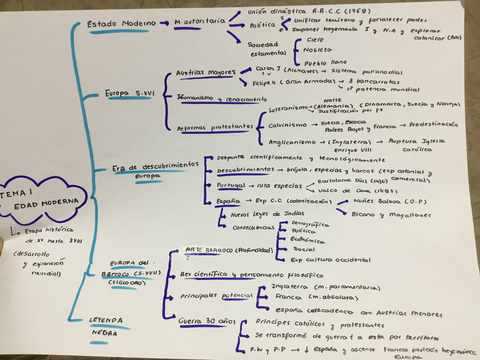 TEMA 1
EDAD MODERNA
Etapa histórica
de XV hasta XVIII
(desarrollo
y expansión
mundial)
Estado Moderno
M. autoritaria
Unión dinástica R.R.C.C (1469)
Política
Unificar territorio y fortalecer poder
Imponer hegemonía I y N.A y explorar
colonizar
Sociedad
estamental
Clero
Nobleza
Pueblo llano
Europa S.XVI
Austrias Mayores
Carlos I (Alemanes) → sistema
Felipe II (Gran Armada)
3 bancarrotas
1ª potencia mundial
Humanismo y renacimiento
Reformas protestantes
Luteranismo
Norte
(Alemania) (Dinamarca, Suecia y Noruega)
Justificación por fe
Calvinismo → Suecia, Escocia
Países Bajos y Francia → Predestinación
Anglicanismo → (Inglaterra) → Ruptura Iglesia
Enrique VIII
Católica
Era de descubrimientos
europa
Despunta científicamente y tecnológicamente
Descubrimientos → brújula, especias y barcos (exp colonial y
comercial)
Portugal → ruta especias
Bartolomé Días
Vasco de Gama
España → Exp C.C (colonización)
Núñez Balboa (O.P)
Elcano y Magallanes
Nuevas Leyes de Indias
Consecuencias
Demográfica
Política
Económica
Social
Exp cultura occidental
EUROPA del
BARROCO (S.XVII)
(SIGLO ORO)
ARTE BARROCO (Profundidad)
Rev científica y pensamiento filosófico
Principales potencias
Inglaterra (m. parlamentaria)
Francia (m. absoluta)
España (decadencia con Austrias menores
Guerra 30 años
Príncipes católicos y protestantes
Se transformó de guerra a esta por territorio
P.W y P.P → ↓ España y ascenso Francia
Europa
LEYENDA
NEGRA